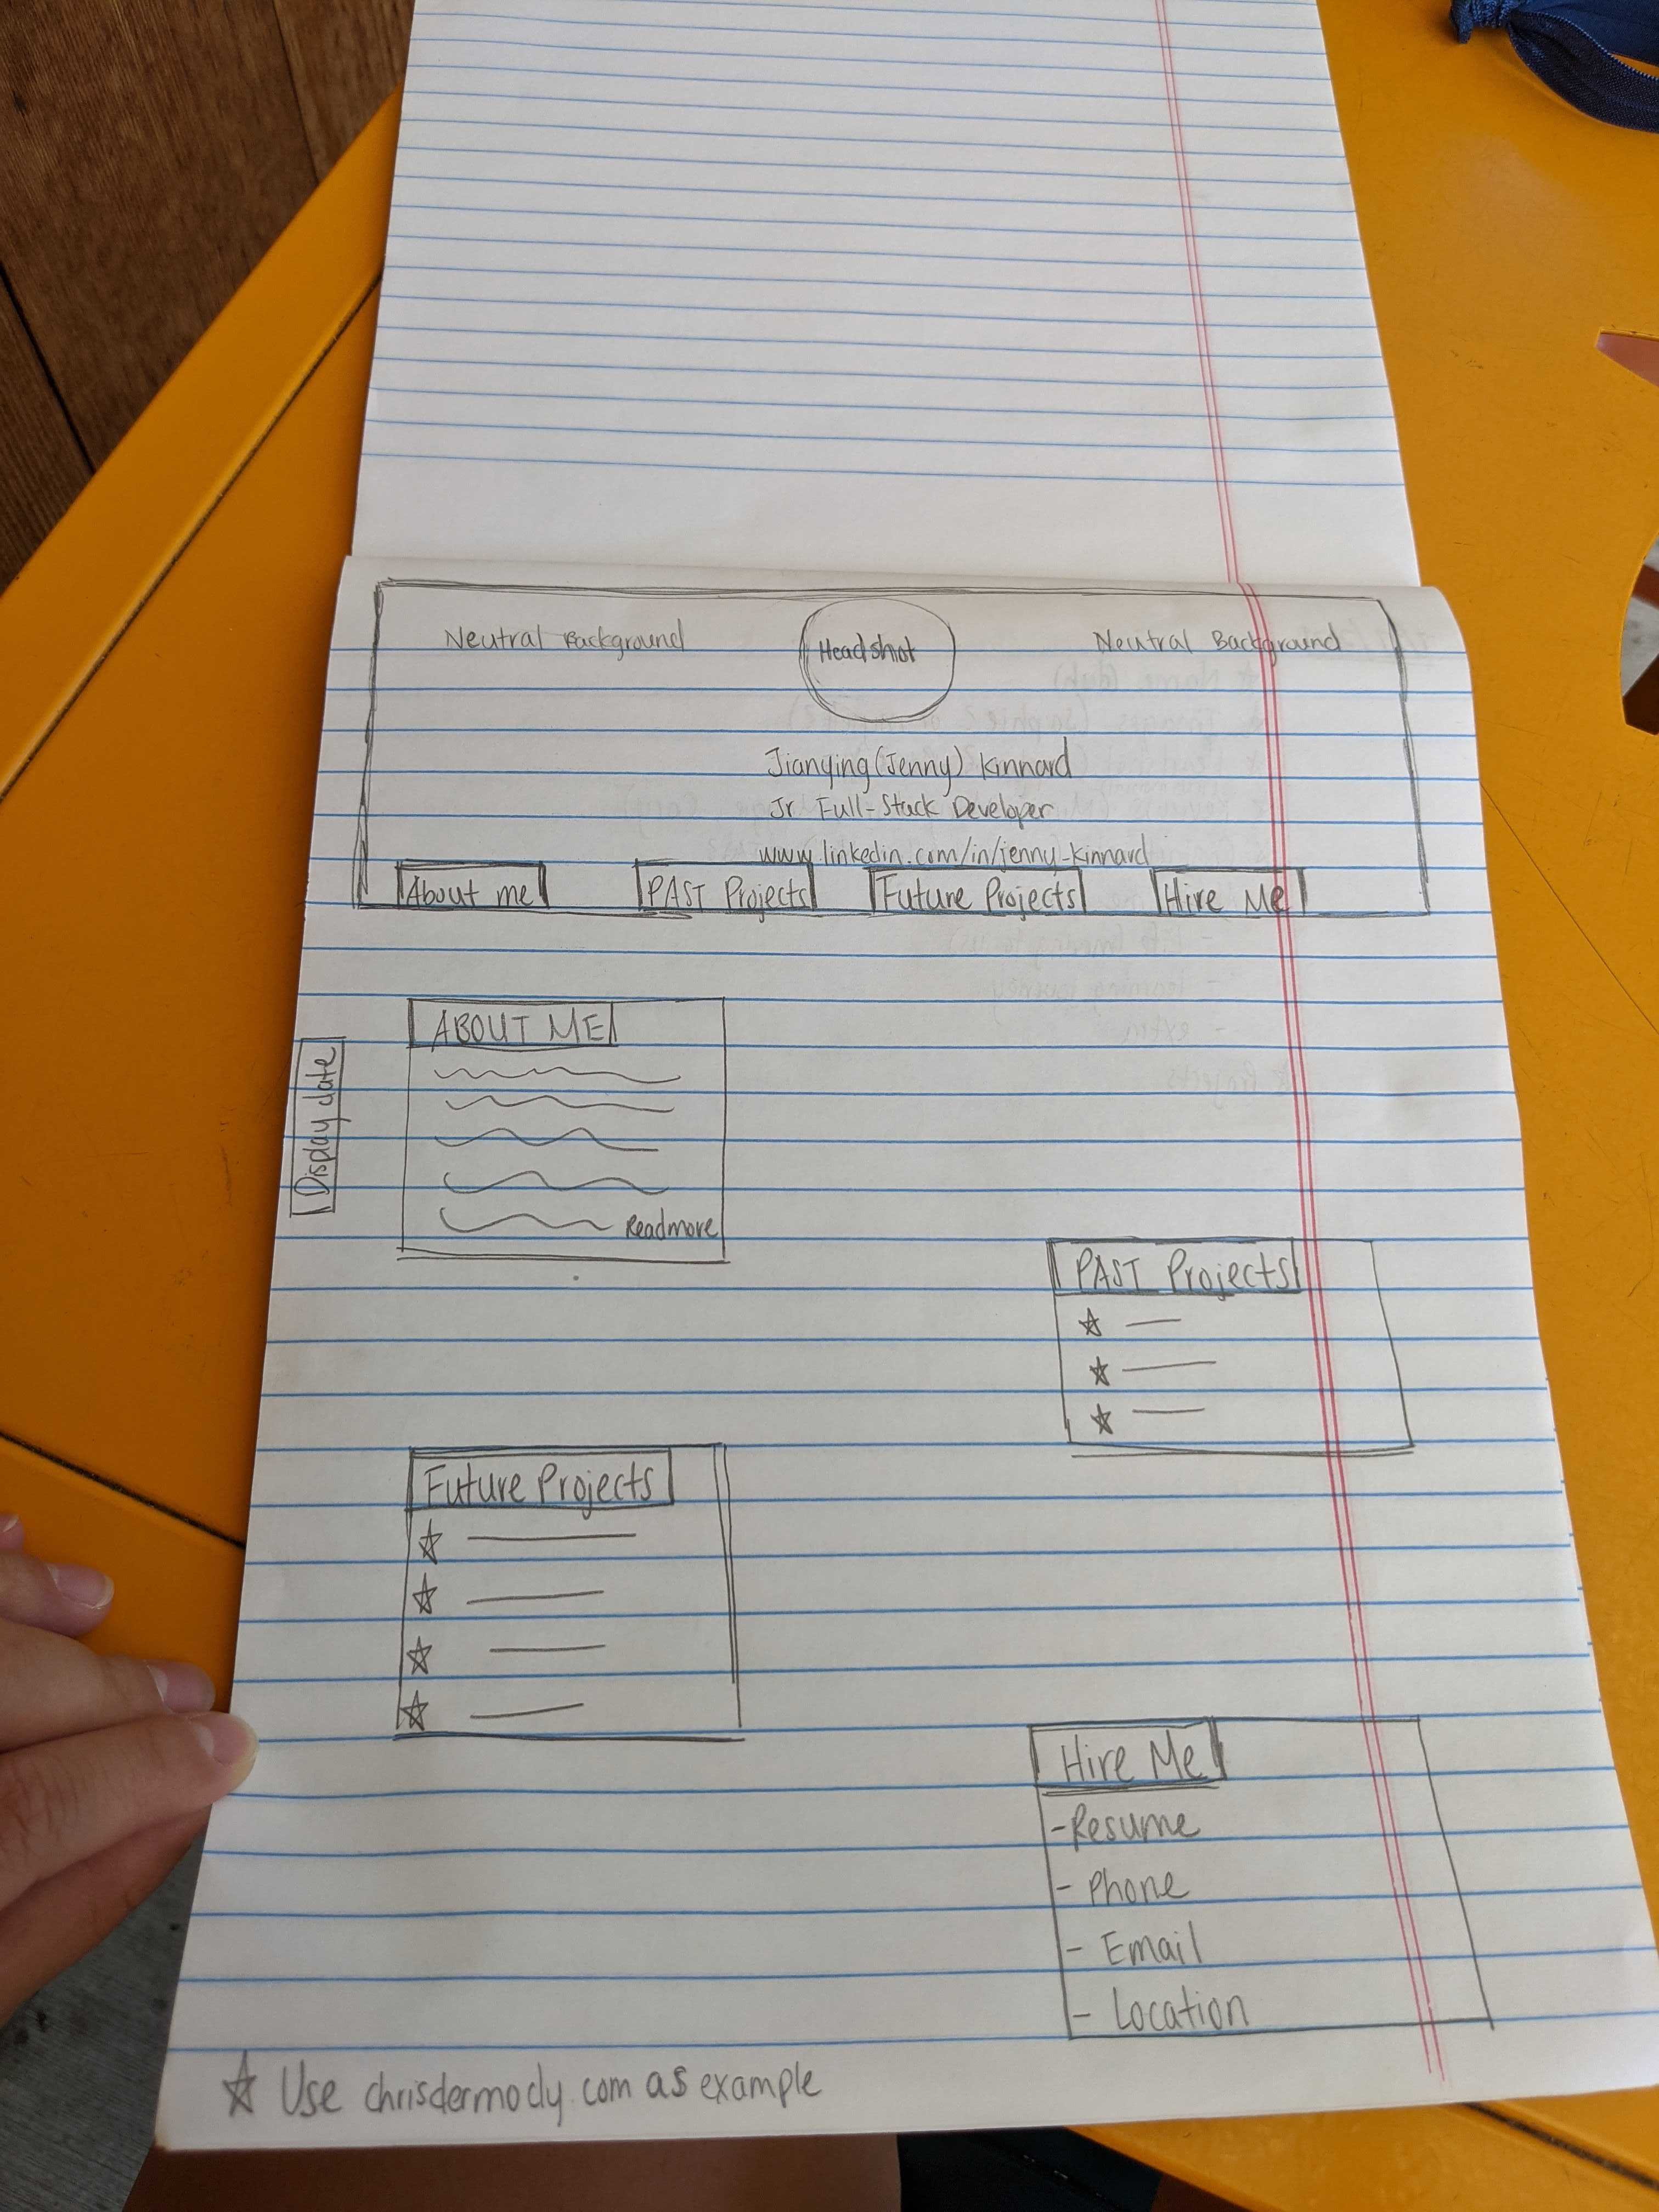 Neutral Background
Headshot
Neutral Background
Jianying (Jenny) Kinnard
Jr Full-Stack Developer
www.linkedin.com/in/jenny-kinnard
About me
PAST Projects
Future Projects
Hire Me
Display date
ABOUT ME
Readmore
PAST Projects
Future Projects
Hire Me
-Resume
- Phone
- Email
- Location
☆ Use chrisdermody.com as example